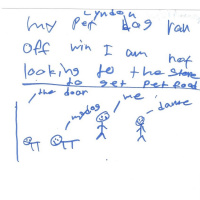 Lyndon
my pet dog ran
off win I am not
looking to the store
to get pet food
the door
mydog
me